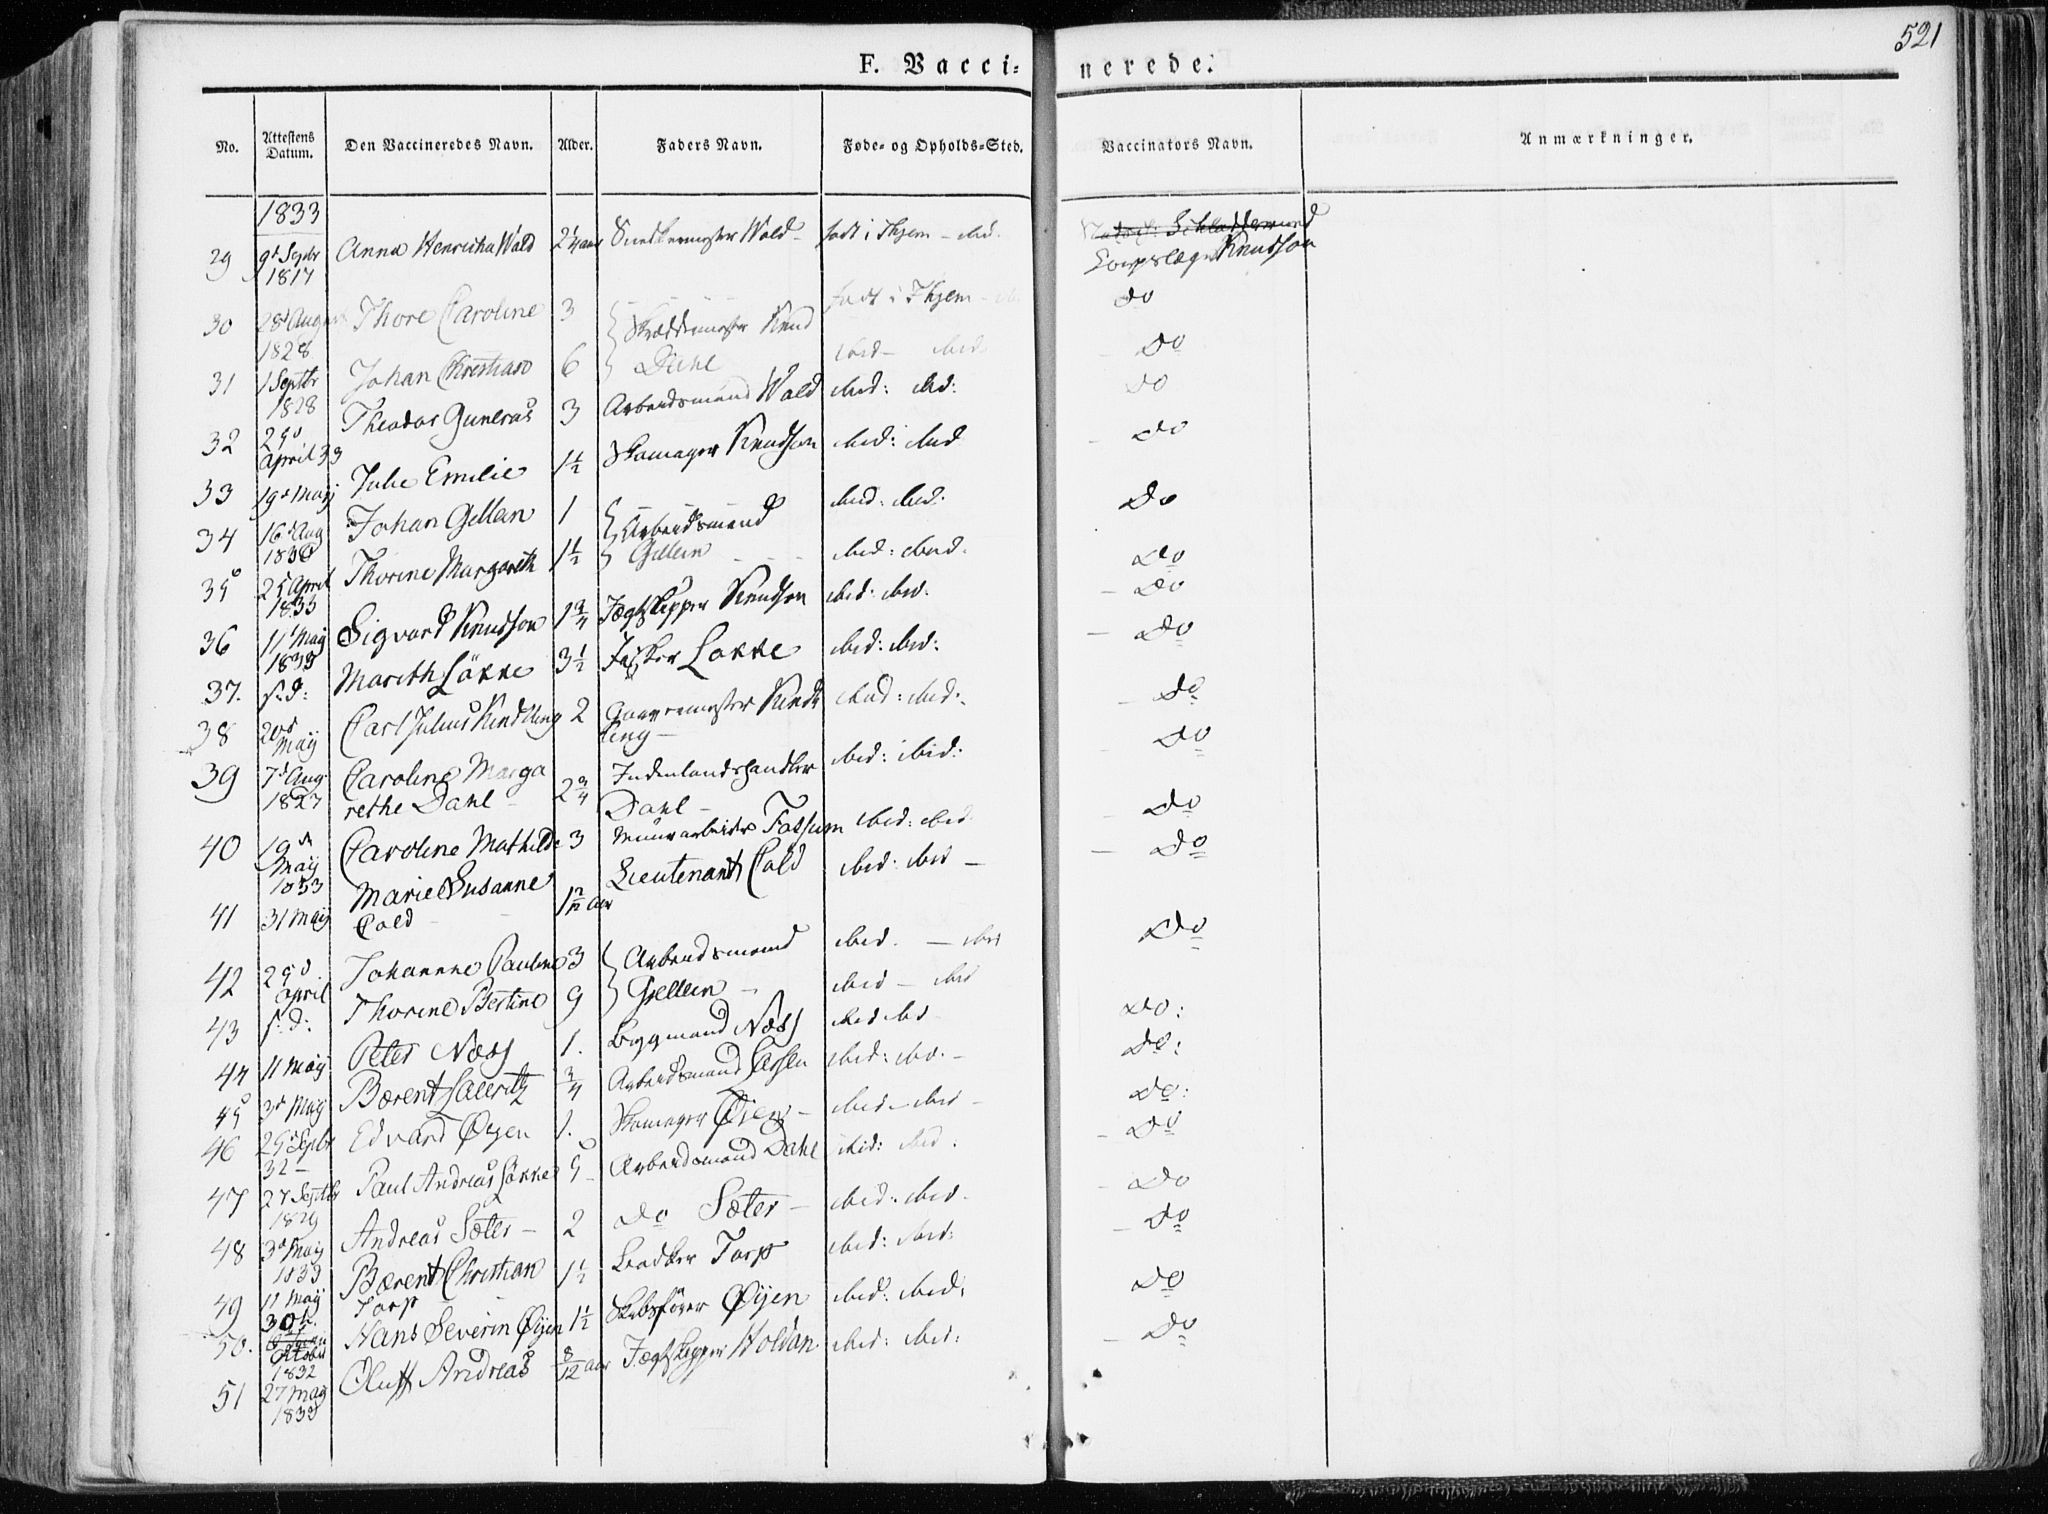 521
F. Vacci= nerede.
No. Attestens Datum. Den Vaccineredes Navn. Alder. Faders Navn. Føde- og Opholds-Sted. Vaccinators Navn. Anmærkninger.
1833
29 9d Septbr 1817 Anna Henricha Wold 2 1/4 aar Snedkermester Wold - født i Thjem - ibid. Corpslæge Knudson
30 28d August 1828 Thore Caroline 3 Skræddermester Knud født i Thjem - Do
31 1 Septbr 1828 Johan Christian 6 Dahl ibid - ibid. - Do
32 29d April 33 Theodor Gunerus 3 Arbeidsmand Wold ibid: ibid: Do
33 19d Maij Julie Emilie 1 1/2 Skomager Knudson ibid: ibid - Do
34 16d Aug 1830 Johan Gellein 1 Arbeidsmand ibid: ibid: Do
35 25 April 1833 Thorine Margareth 1 1/2 Gellein ibid: ibid. Do
36 11d Maij 1833 Sigvard Knudson 1 3/4 Jægtskipper Knudson ibid: ibid. - Do
37. s.d: Marith Løkke 3 1/2 Fisker Løkke ibid: ibid: - Do
38 20d Maij Carl Julius Kindling 2 Garvermester Kind ling - ibid: ibid: - Do
39 7d Aug 1827 Caroline Marga rethe Dahl - 2 3/4 Indenlandshandler Dahl - ibid: ibid: - Do
40 19d Maij 1833 Caroline Mathilde 3 Muurarbeider Fossum ibid: ibid Do
41 31 Maij Marie Susanne Cold - 1 7/12 aar Lieutenant Cold ibid: ibid - - Do
42 29d April Johanne Pauline 3 Arbeidsmand ibid. - ibid Do
43 s: d: Thorine Bertine 9 Gjellein - ibid - ibid
44 11 Maij Peter Næss 1. Byggmand Næss ibid ibid - Do:
45 3d Maij Bærent 3/4 Arbeidsmand ibid: ibid. - Do:
46 29d Septbr 32 - Edvard Øyen 1. Skomager Øien - ibid - ibid - Do:
47 27 Septbr 1829 Paul Andreas Løkke 5 - Arbeidsmand Dahl ibid: ibid. - Do
48 3d Maij 1833 Andreas Sæter - 2 Do Sæter - ibid: ibid - - Do
49 11 Maij Bærent Christian Torp 1 1/2 Torp ibid: ibid: - Do
50. 30te October 1832 Hans Severin Øijen 1 1/2 Skibsfører Øijen ibid: ibid: Do
51 27 Maij 1833 Oluff Andreas 8/12 aar Jægtskipper Holdan ibid: ibid: - Do